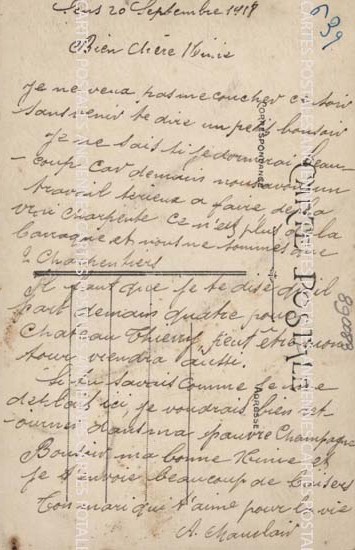 Sens 20 Septembre 1918
Bien chère Ninie
Je ne veux pas me coucher ce soir
sans venir te dire un petit bonsoir
Je ne sais si je dormirai beau-
-coup car demain nous avons un
travail serieux a faire de la
vrai charpente ce n'est plus de la
barraque et nous ne sommes que
2 Charpentiers
Il faut que je te dise qu'il
part demain quatre pour
Chateau Thierry, peut être mon
tour viendra aussi.
Si tu savais comme je me
deplait ici, je voudrais bien
dans ma pauvre Champagne
Bonsoir ma bonne Ninie et
je t'envoie beaucoup de baisers
Ton mari qui t'aime pour la vie
A.
CARTE POSTALE
CORRESPONDANCE
ADRESSE
639
CARTES POSTALES